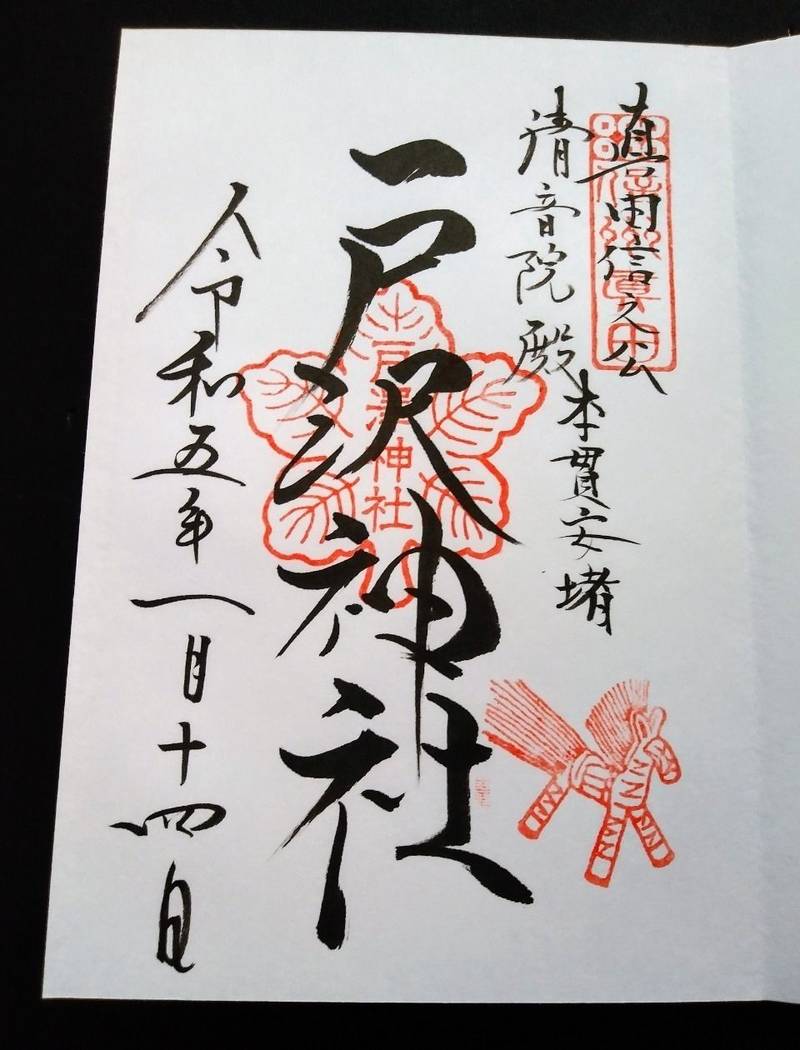 真田信之公
清音院殿
本貫安堵
戸沢神社
戸澤神社
令和五年一月十四日